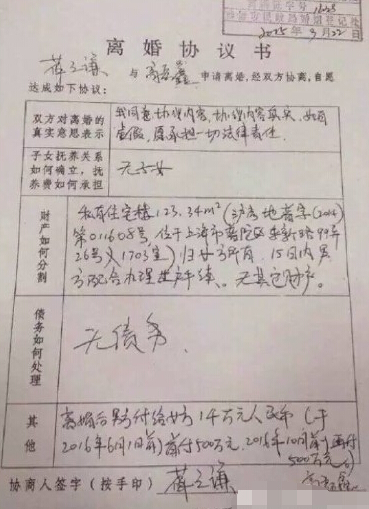 2015年3月22日
离婚协议书
薛之谦 与 高磊鑫 申请离婚,经双方协商,自愿
达成如下协议:
双方对离婚的
真实意思表示
我同意协议内容,协议内容真实,如有
虚假,愿承担一切法律责任.
子女抚养关系
如何确立,抚
养费如何承担
无子女
财产如何分割
私有住宅楼123.34m²(沪房地普字(2014)
第011608号,位于上海市普陀区 99弄
26号 1703室)归女方所有,15日内男
方配合办理过户手续。无其它财产。
债务如何处理
无债务
其他
离婚后男方付给女方 1千万元人民币(于
2016年6月1日前)首付500万元,2016年10月前再付
500万元)
协商人签字(按手印) 薛之谦 高磊鑫